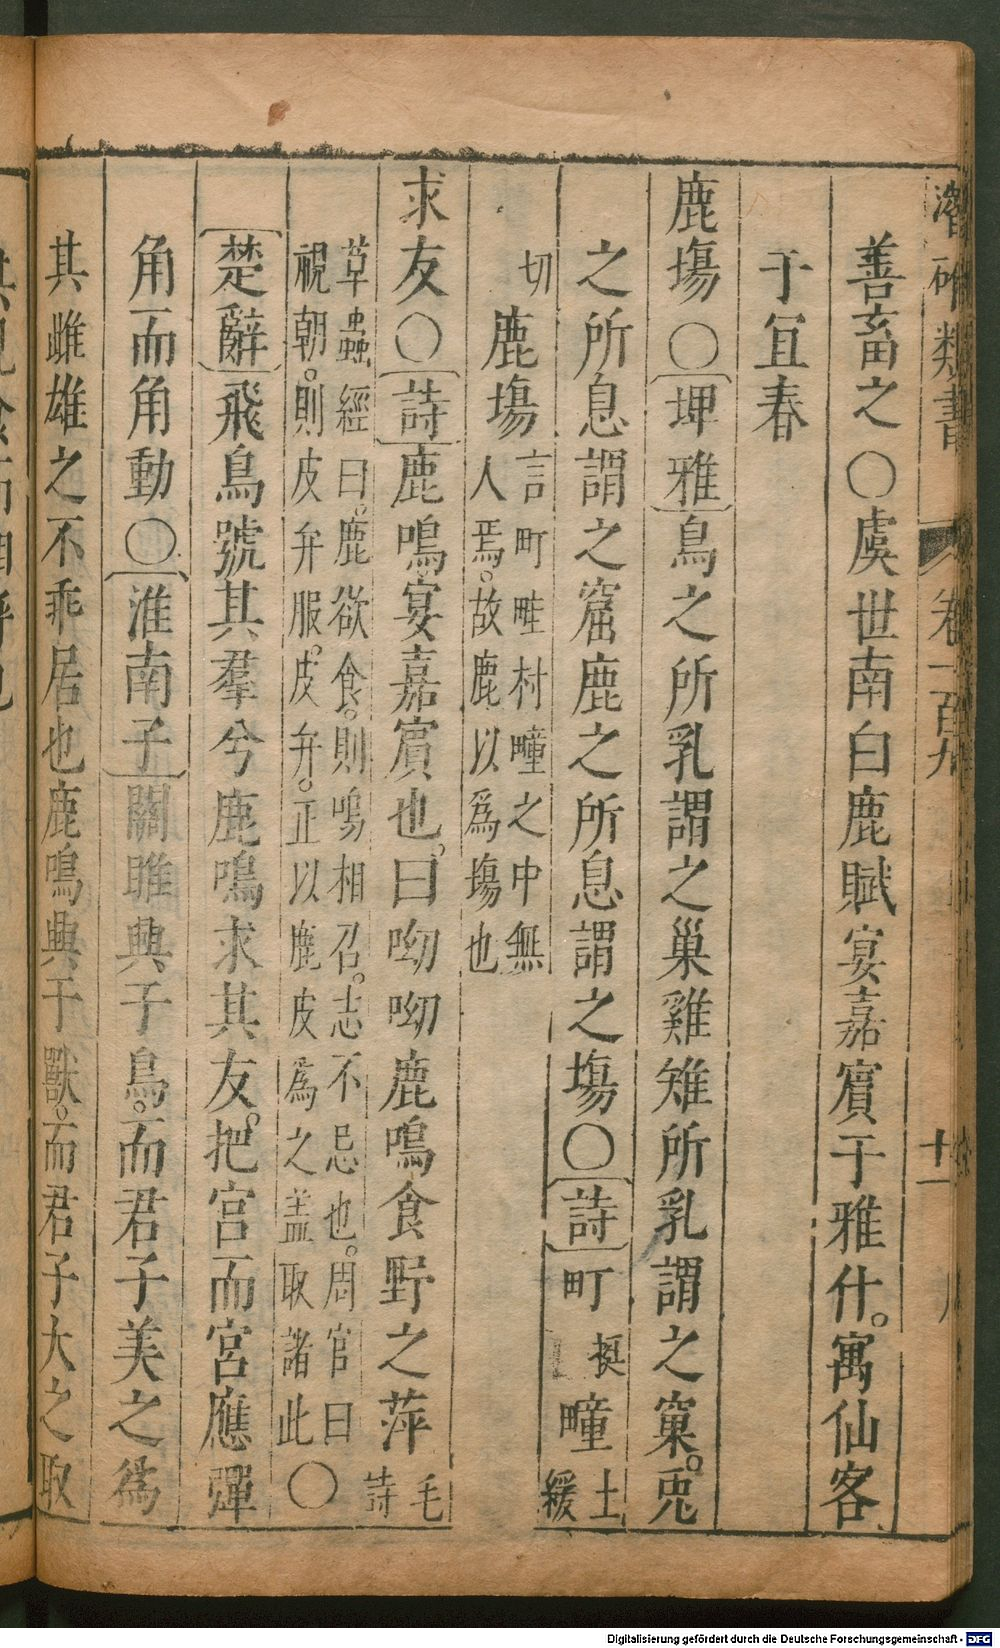 潛确類書 卷一百九 十一
善畜之〇虞世南白鹿賦宴嘉賔于雅什。寓仙客
于宜春
鹿塲〇埤雅鳥之所乳謂之巢雞雉所乳謂之窠。兎
之所息謂之窟鹿之所息謂之塲〇詩町挺疃土緩
切鹿塲言町畦村疃之中無人焉。故鹿以爲塲也
求友〇詩鹿鳴宴嘉賔也。曰呦呦鹿鳴食野之苹毛詩
草蟲經曰。鹿欲食。則鳴相召。志不忌也。周官曰
視朝。則皮弁服。皮弁。正以鹿皮為之盖取諸此〇
楚辭飛鳥號其羣兮鹿鳴求其友。把宫而宫應彈
角而角動〇淮南子關雎興于鳥。而君子美之爲
其雌雄之不乖居也鹿鳴興于獸。而君子大之取
Digitalisierung gefördert durch die Deutsche Forschungsgemeinschaft - DFG